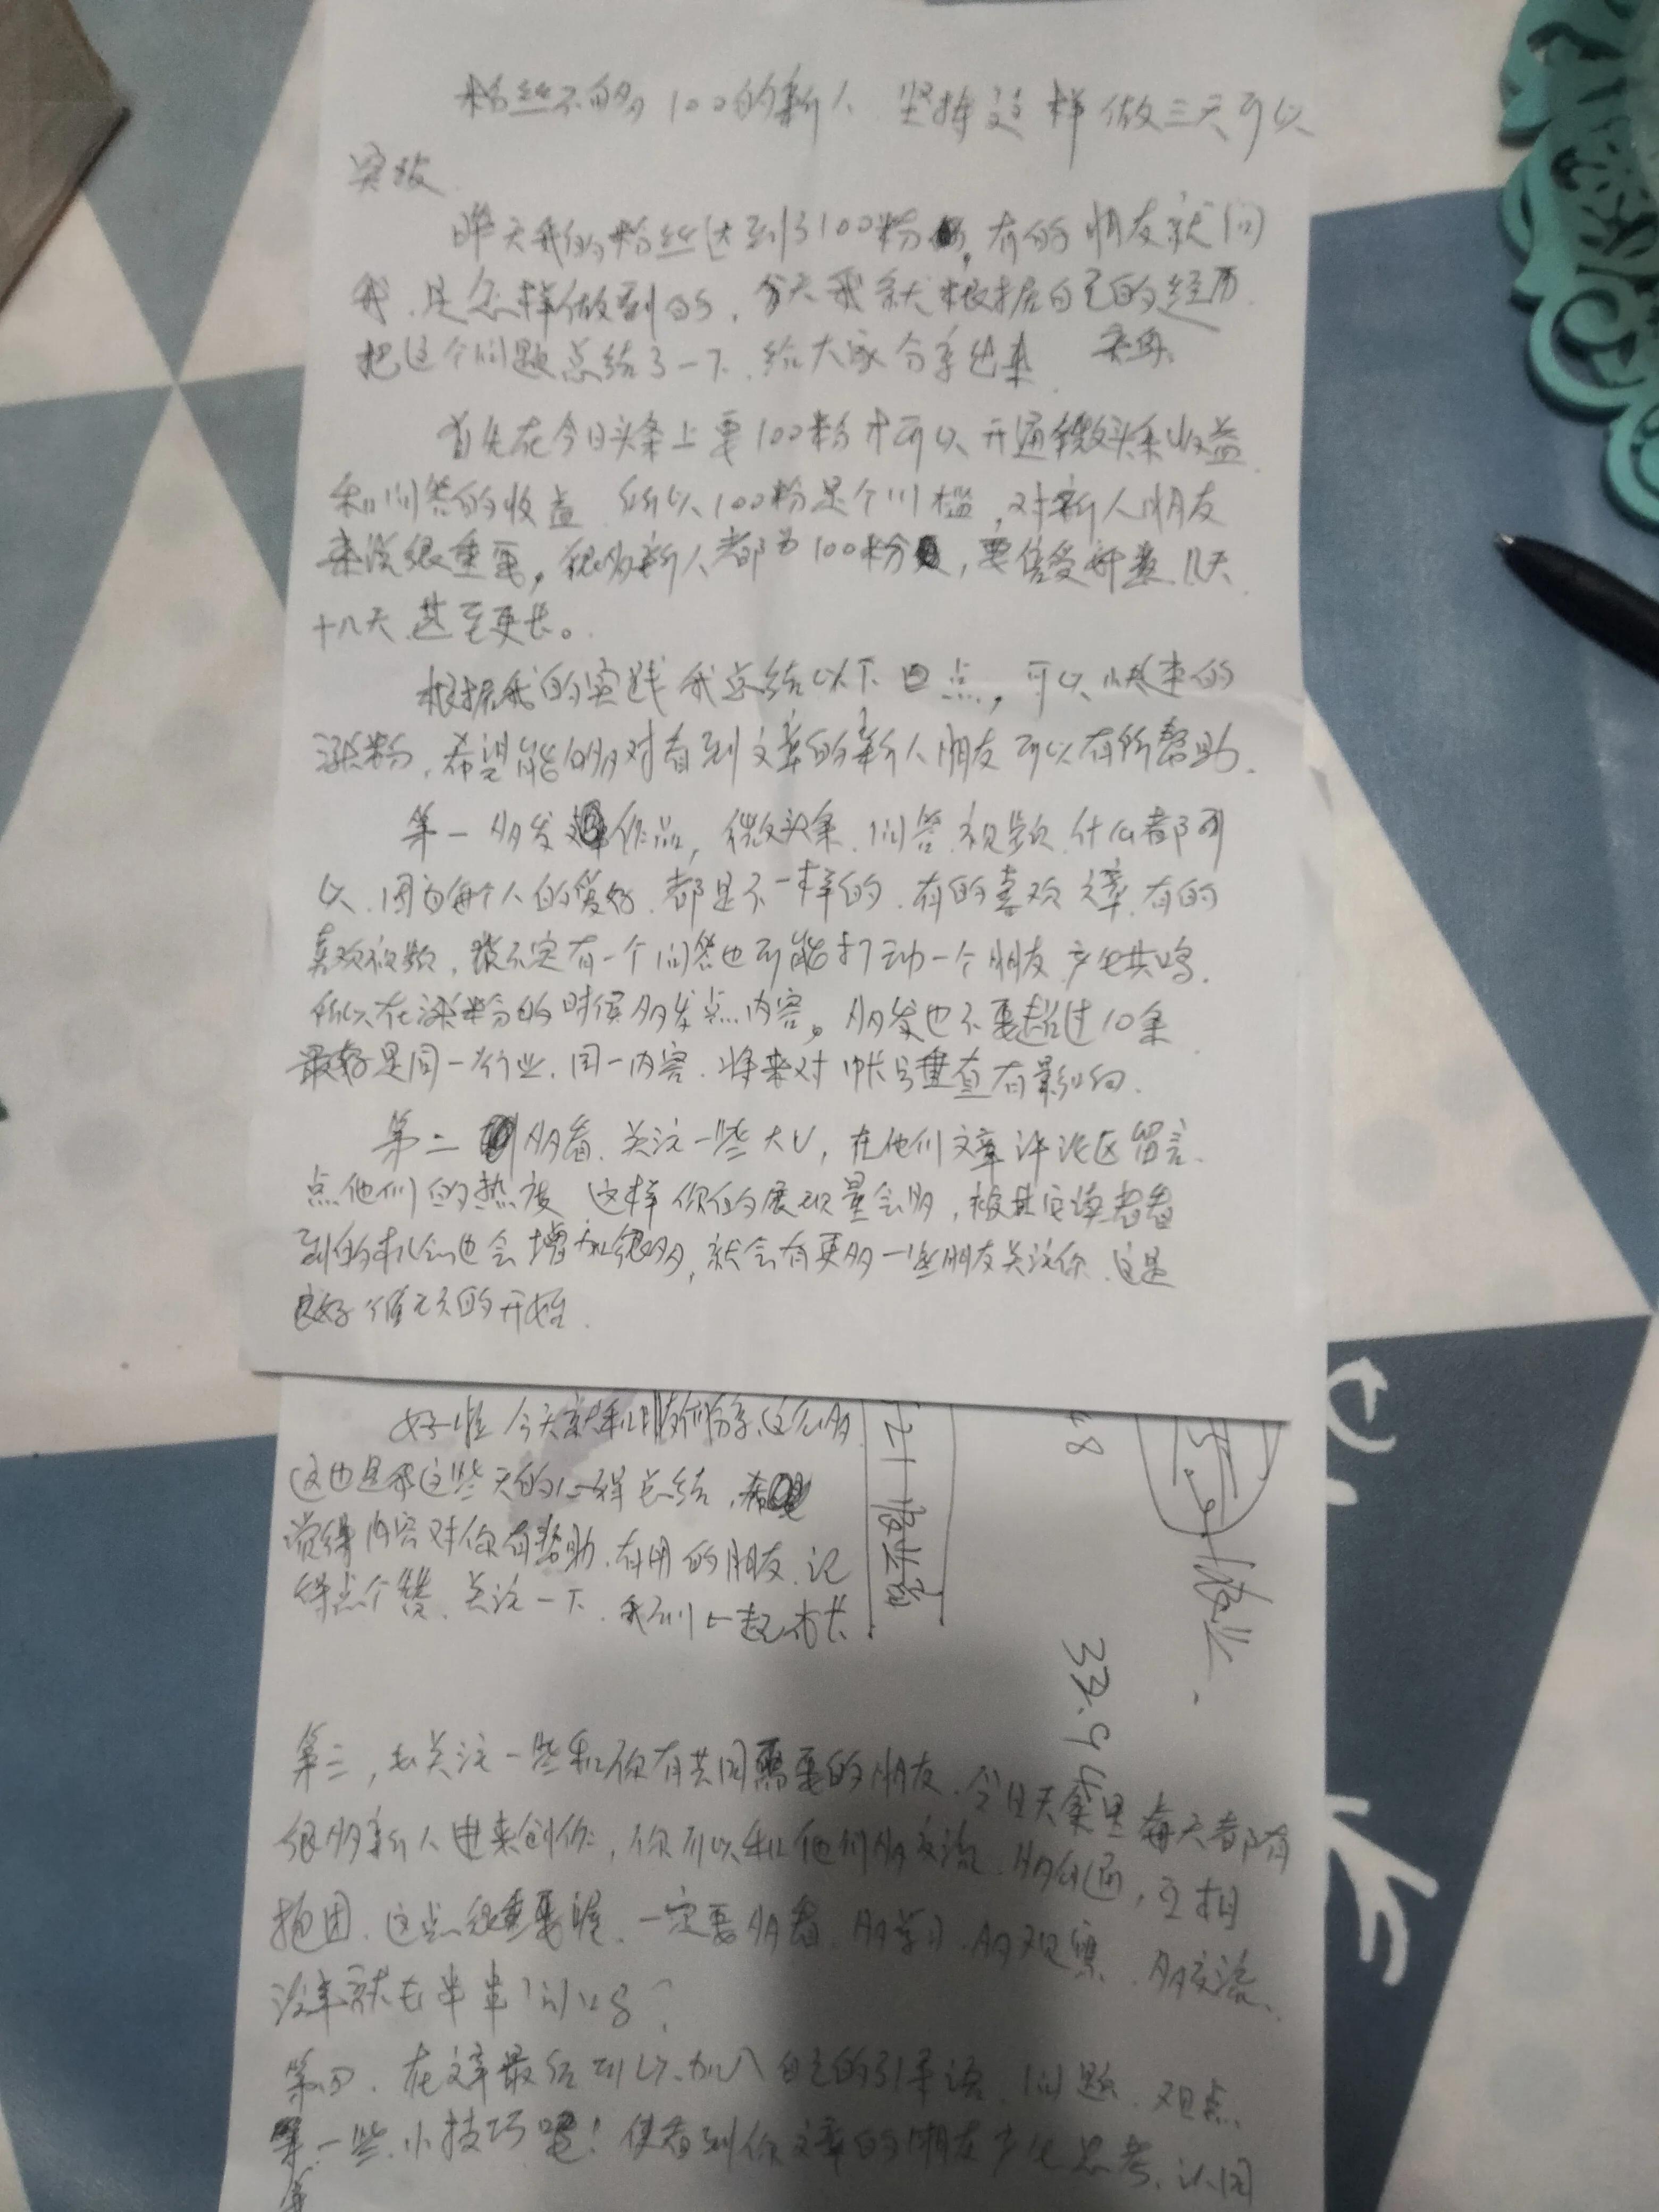 粉丝不的多100的新人 坚持这样做三天可以
突破
昨天我的粉丝达到了100粉，有的朋友就问
我，是怎样做到的，今天我就根据自己的经历
把这个问题总结了一下，给大家分享出来
首先在今日头条上要100粉才可以开通微头条收益
和问答的收益 所以100粉是个门槛，对新人朋友
来说很重要，很多新人都为100粉，要倍受煎熬 几天
十几天 甚至更长。
根据我的实践 我总结以下四点，可以快速的
涨粉，希望能够对看到文章的新人朋友可以有所帮助.
第一 多发作品，微头条、问答、视频、什么都可
以、因为每个人的爱好、都是不一样的、有的喜欢文章、有的
喜欢视频，说不定有一个问答也可能打动一个朋友产生共鸣.
所以在涨粉的时候多发点内容。多发也不要超过10条
最好是同一行业、同一内容、将来对帐号垂直有影响.
第二 多看、关注一些大V，在他们文章评论区留言、
点他们的热度 这样你的展现量会多，被其它读者看
到的机会也会增加很多，就会有更多一些朋友关注你、这是
良好的开始.
好啦 今天就和朋友们分享这么多
这也是我这些天的心得总结，
觉得内容对你有帮助、有用的朋友、记
得点个赞、关注一下、我们一起成长
21
48
33.94
第三，去关注一些和你有共同需要的朋友、今日头条里每天都有
很多新人进来创作，你可以和他们多交流、多沟通，互相
抱团、这点很重要喔、一定要多看、多学习、多观察、多交流、
没事就去串串门
第四、在文章最后可以加入自己的引导语、问题、观点、
等一些小技巧吧！使看到你文章的朋友产生思考、认同